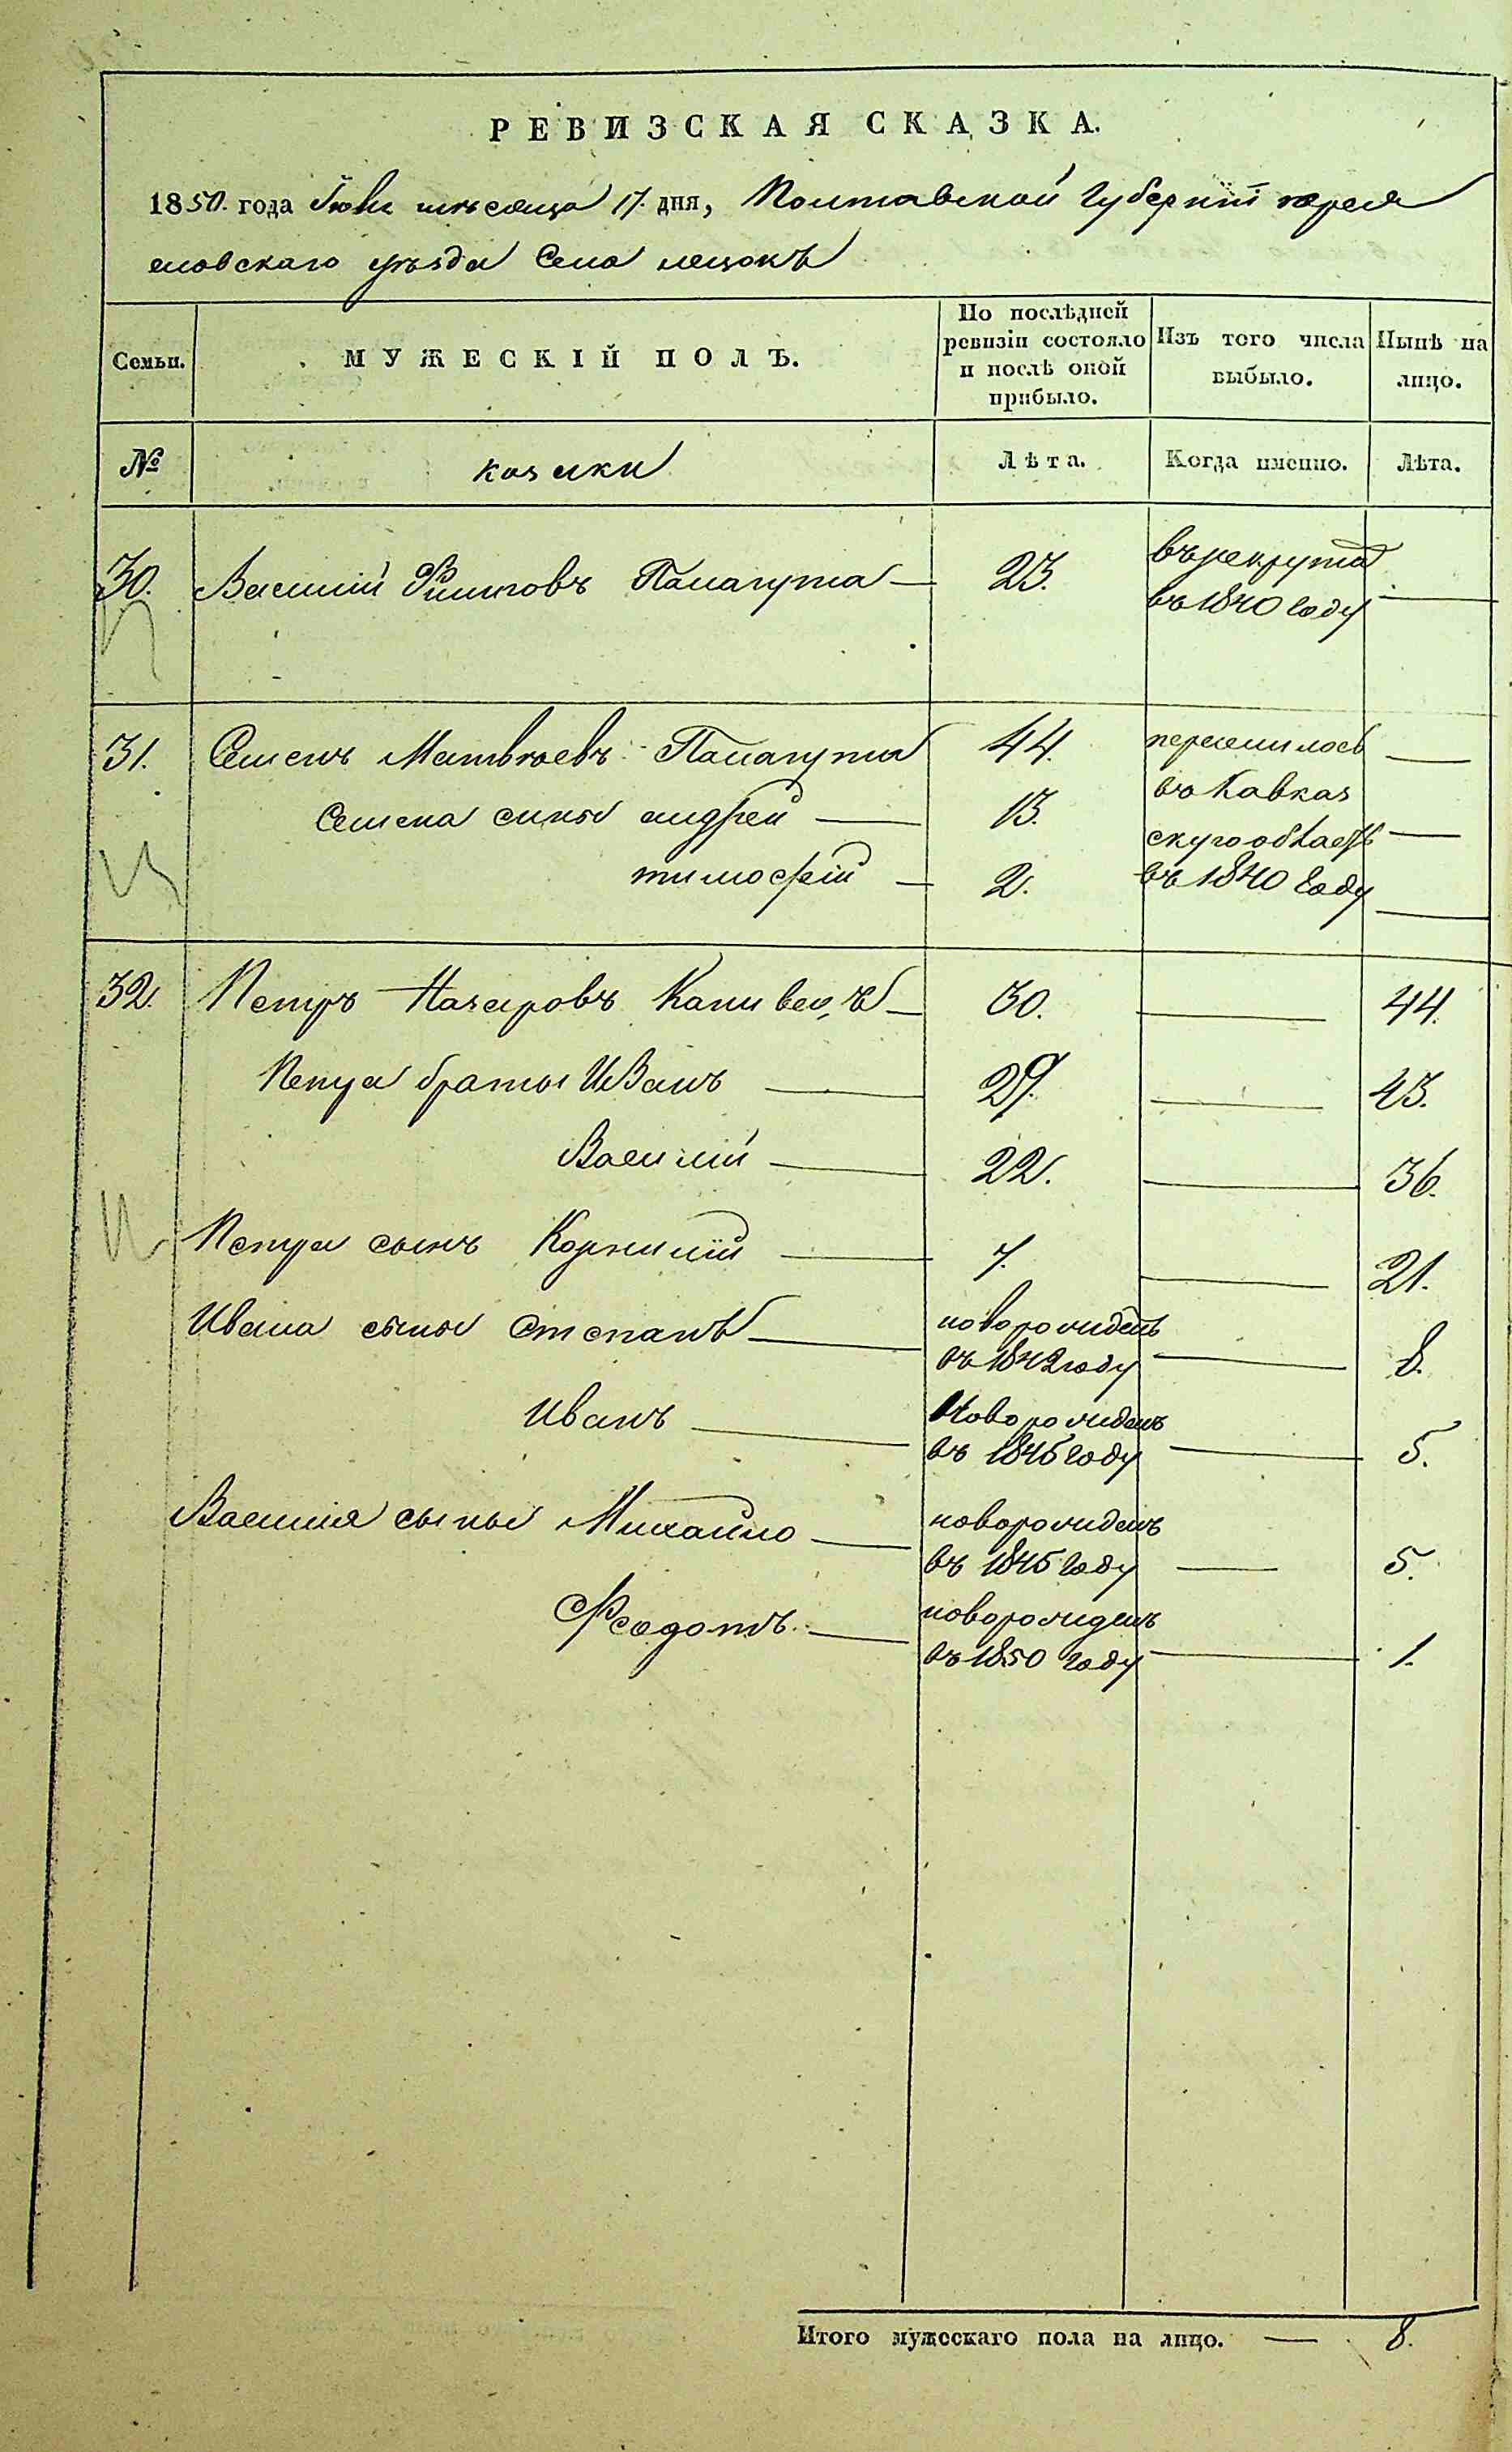 РЕВИЗСКАЯ СКАЗКА.
1850. года Июня месяца 17. дня, Полтавской Губерніи перея
славскаго уѣзда Села
Семьи. МУЖЕСКІЙ ПОЛЪ. По послѣдней ревизіи состояло и послѣ оной прибыло. Изъ того числа выбыло. Нынѣ на лицо.
№ козаки Лѣта. Когда именно. Лѣта.
30. Василий Филиповъ Палагута 23. въ рекрута
въ 1840 году
31. Семенъ Матвѣевъ Палагута 44. переселилось
въ Кавказ
Семена сины андрей 13.
скую область
тимофей 2. въ 1840 году
32. Петръ Назаровъ Канивецъ 30. 44.
Петра браты Иванъ 29. 43.
Василий 22. 36.
Петра сынъ Корнилий 7. 21.
Ивана сыны Степанъ новорожденъ
въ 1842 году 8.
Иванъ Новорожденъ
въ 1845 году 5.
Василия сыны Михайло новорожденъ
въ 1845 году 5.
Федотъ новорожденъ
въ 1850 году 1.
Итого мужескаго пола на лицо. 8.